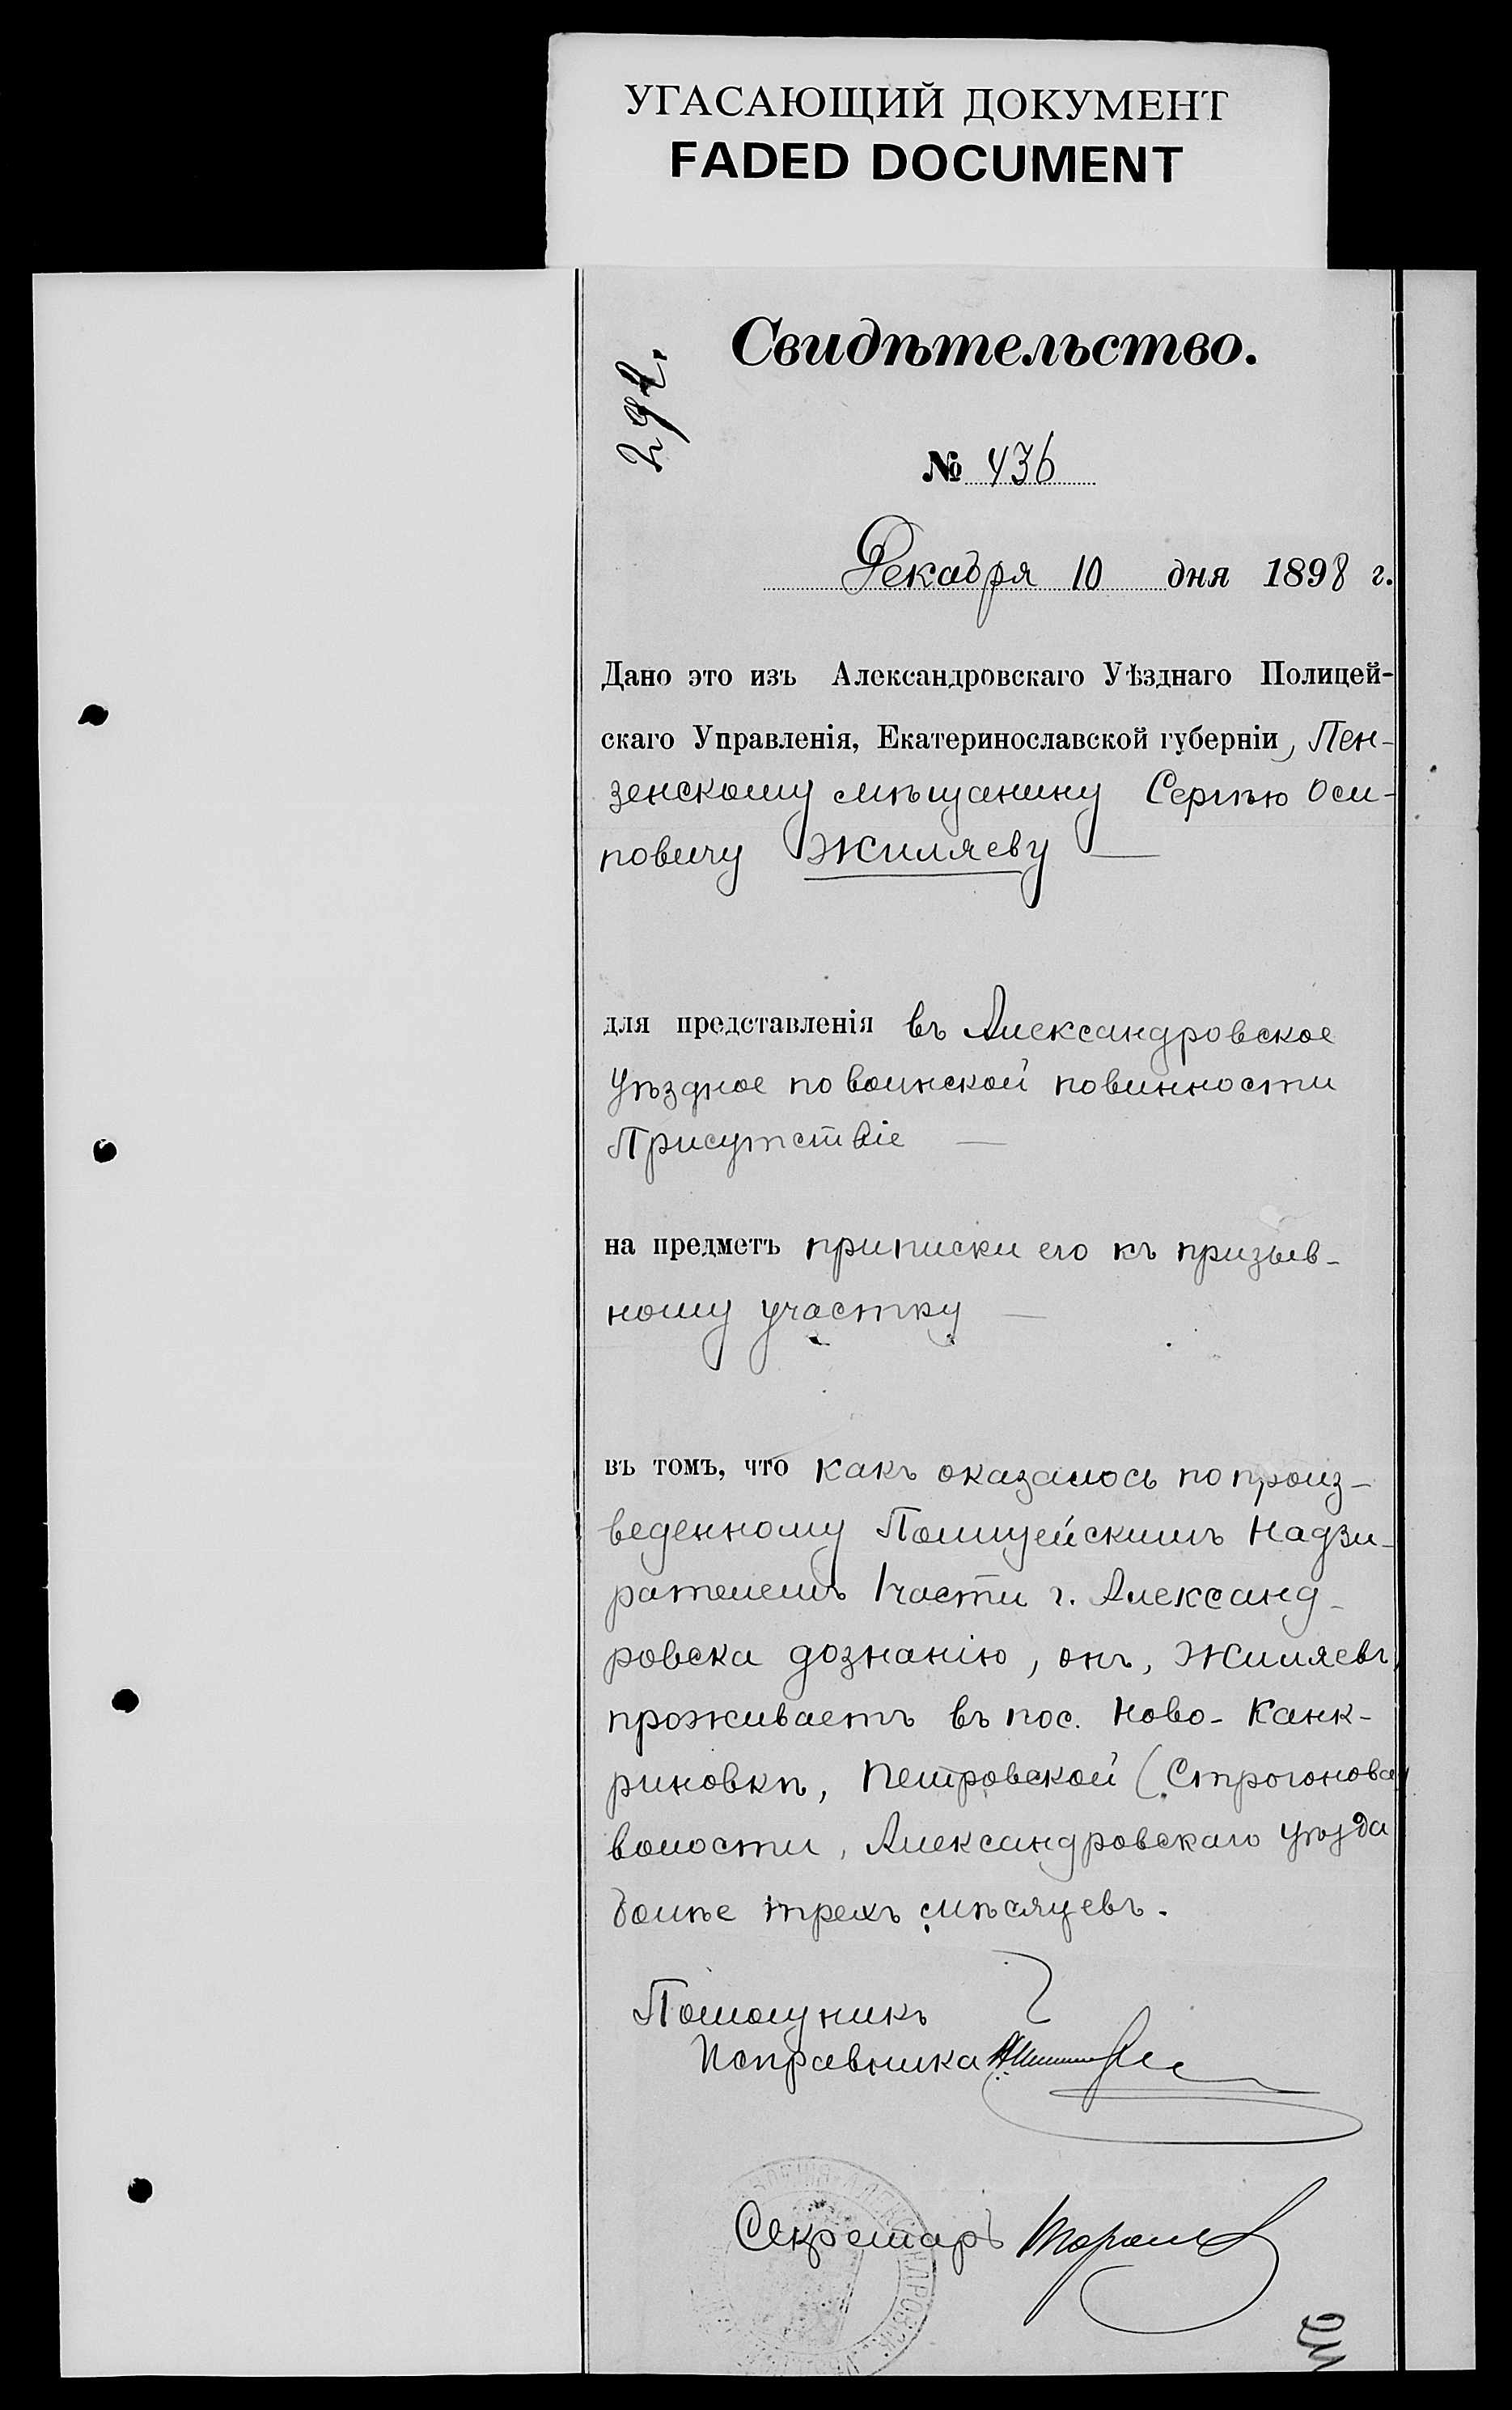 УГАСАЮЩИЙ ДОКУМЕНТ
FADED DOCUMENT
Свидѣтельство.
№ 436
Декабря 10 дня 1898 г.
Дано это изъ Александровскаго Уѣзднаго Полицей-
скаго Управленія, Екатеринославской губерніи, Пен-
зенскому мѣщанину Сергѣю Оси-
повичу Жиляеву —
для представленія въ Александровское
Уѣздное по воинской повинности
Присутствіе —
на предметъ приписки его къ призыв-
ному участку —
въ томъ, что какъ оказалось по произ-
веденному Полицейскимъ Надзи-
рателемъ 1 части г. Александ-
ровска дознанію, онъ, Жиляевъ,
проживаетъ въ пос. Ново-Канк-
риновкѣ, Петровской (Строгонова)
волости, Александровскаго уѣзда
болѣе трехъ мѣсяцевъ.
Помощникъ
Исправника
Секретарь